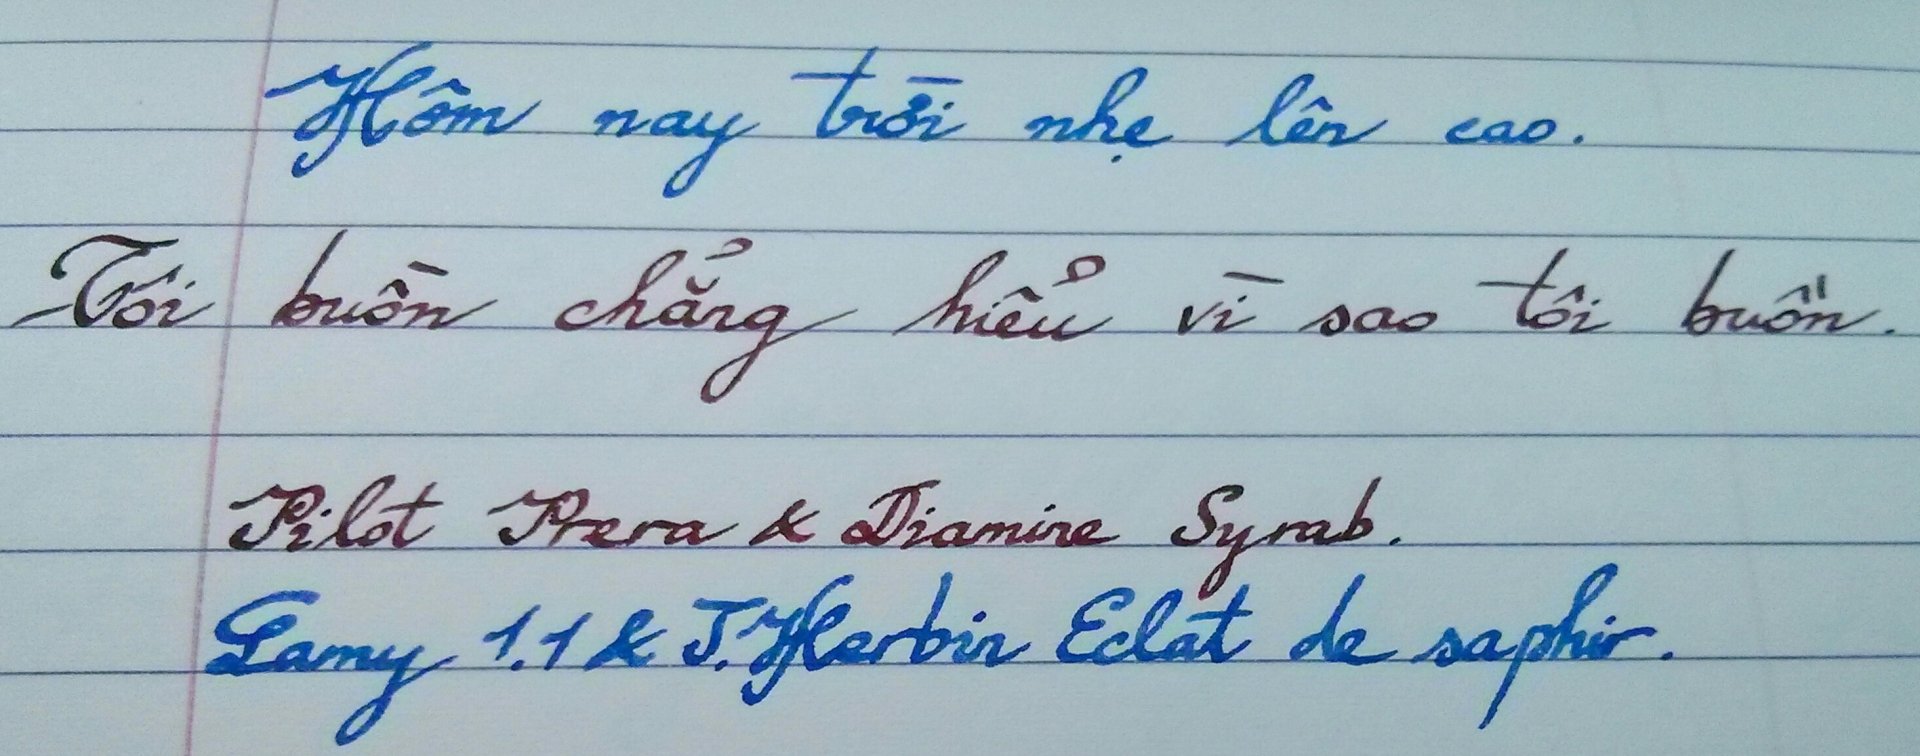 Hôm nay trời nhẹ lên cao.
Tôi buồn chẳng hiểu vì sao tôi buồn.
Pilot Prera & Diamine Syrab.
Lamy 1.1 & J.Herbin Eclat de saphir.